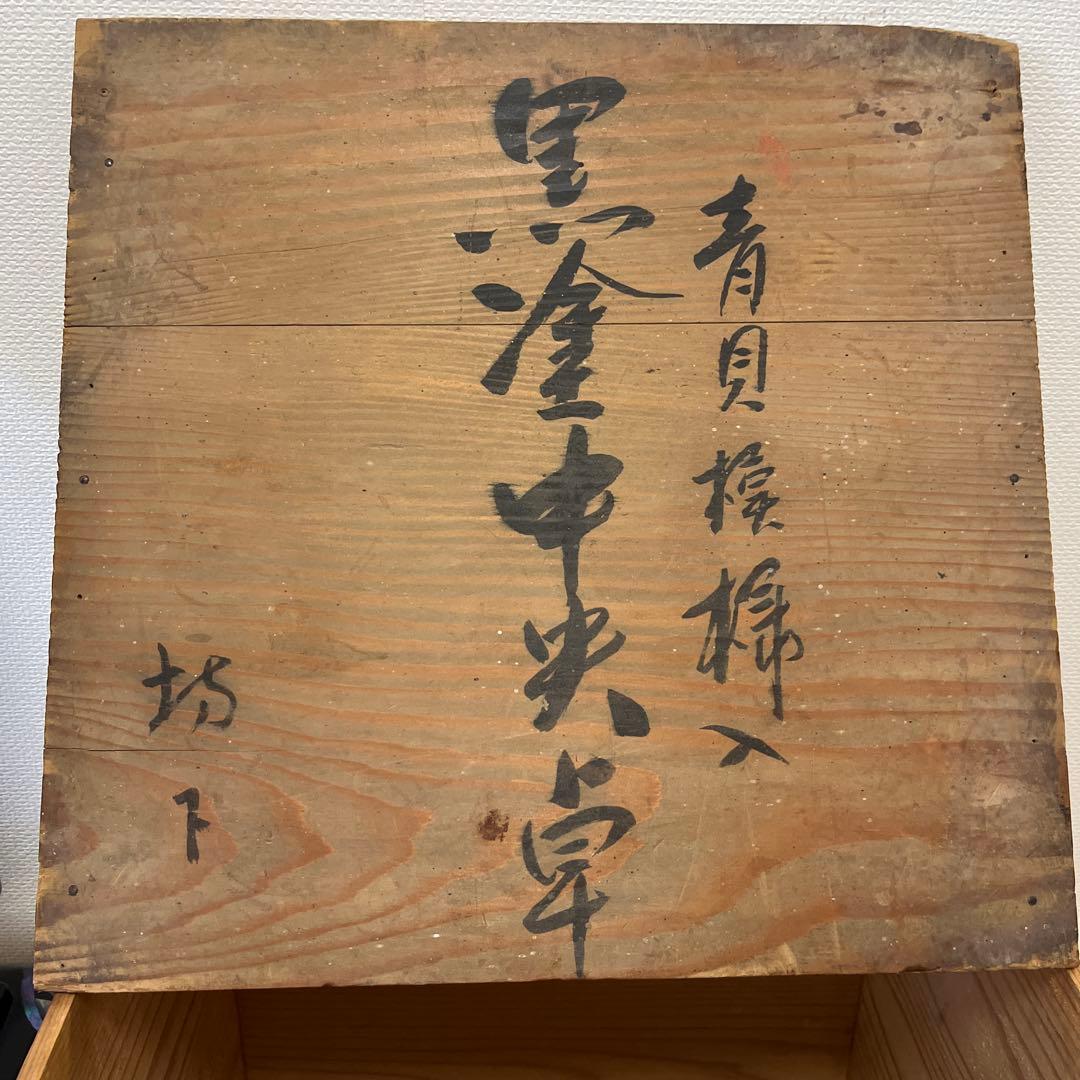 青貝模様入
黒塗中央卓
坊下